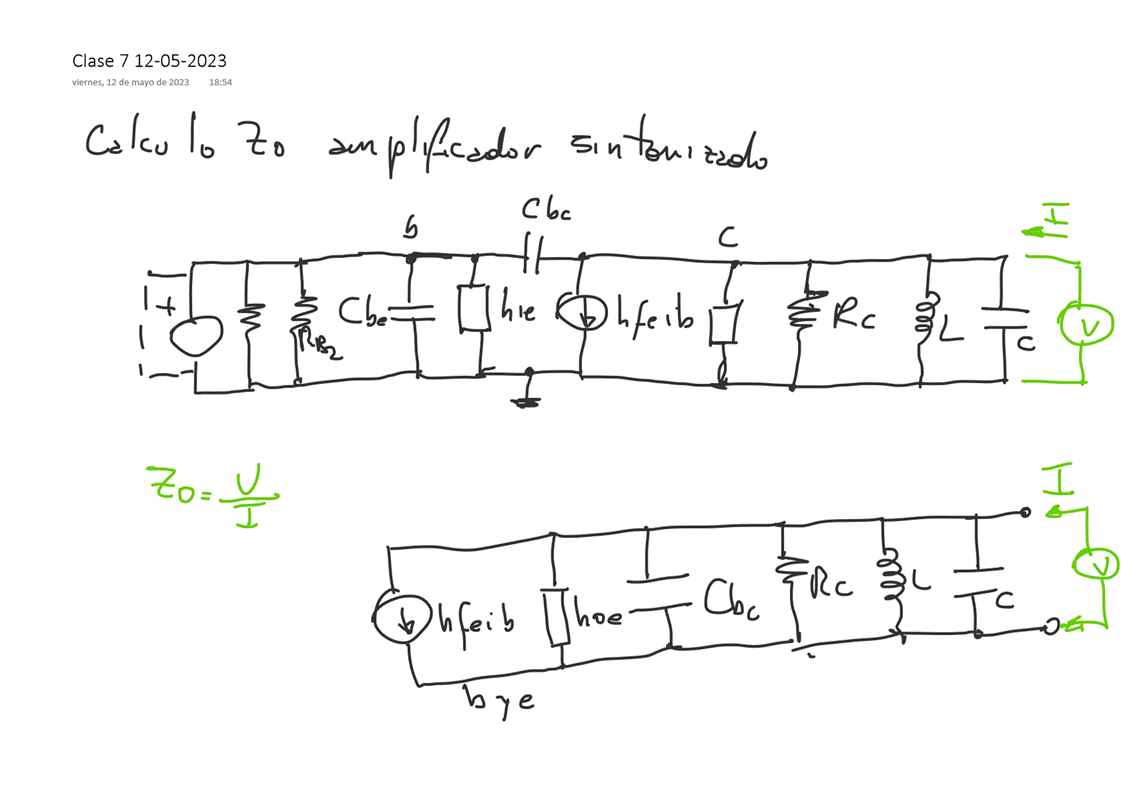 Clase 7 12-05-2023
viernes, 12 de mayo de 2023 18:54
Calculo Zo amplificador sintonizado
Cbc
b
C
I
+
RB2
Cbe
hie
hfeib
Rc
L
C
V
Zo = V/I
I
hfeib
hoe
Cbc
Rc
L
C
V
b y e